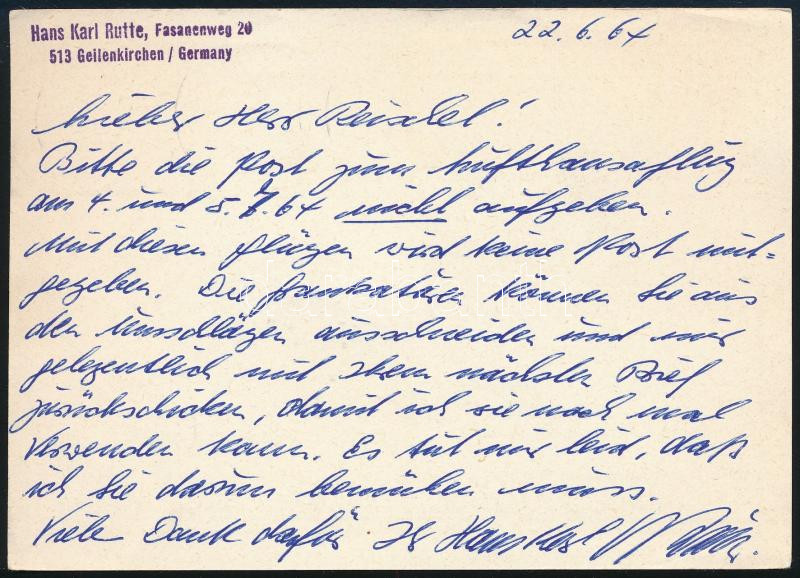 Hans Karl Rutte, Fasanenweg 20
513 Geilenkirchen / Germany
22.6.64
Lieber Herr Reischl!
Bitte die Post zum Lufthansaflug
am 4. und 5.7.64 nicht aufgeben.
Mit diesen Flügen wird keine Post mit=
gegeben. Die Frankaturen können Sie aus
den Umschlägen ausschneiden und mir
gelegentlich mit Ihrem nächsten Brief
zurückschicken, damit ich sie noch mal
verwenden kann. Es tut mir leid, daß
ich Sie darum bemühen muss.
Viele Dank dafür Ihr Hans Karl